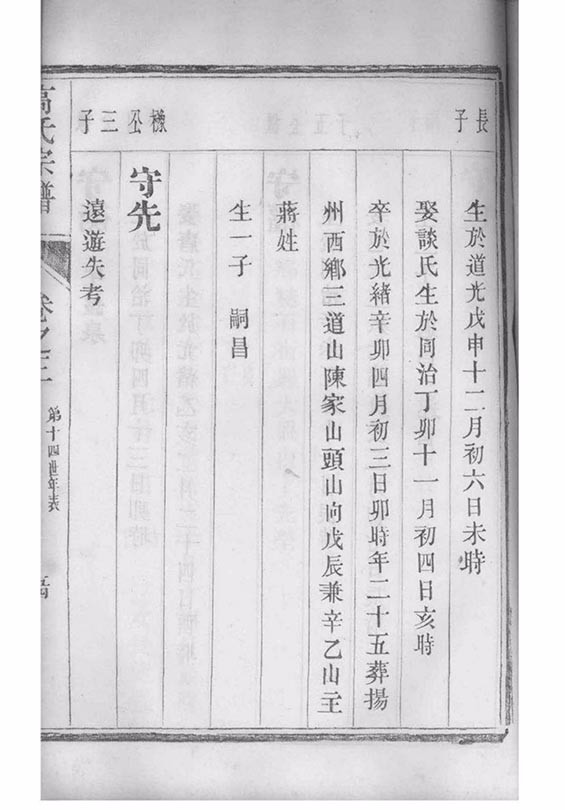 長子
生於道光戊申十二月初六日未時
娶談氏生於同治丁卯十一月初四日亥時
卒於光緒辛卯四月初三日卯時年二十五葬揚
州西鄉三道山陳家山頭山向戊辰兼辛乙山主
蔣姓
生一子 嗣昌
公三子
守先
遠遊失考
高氏宗譜
卷之三
第十四世年表